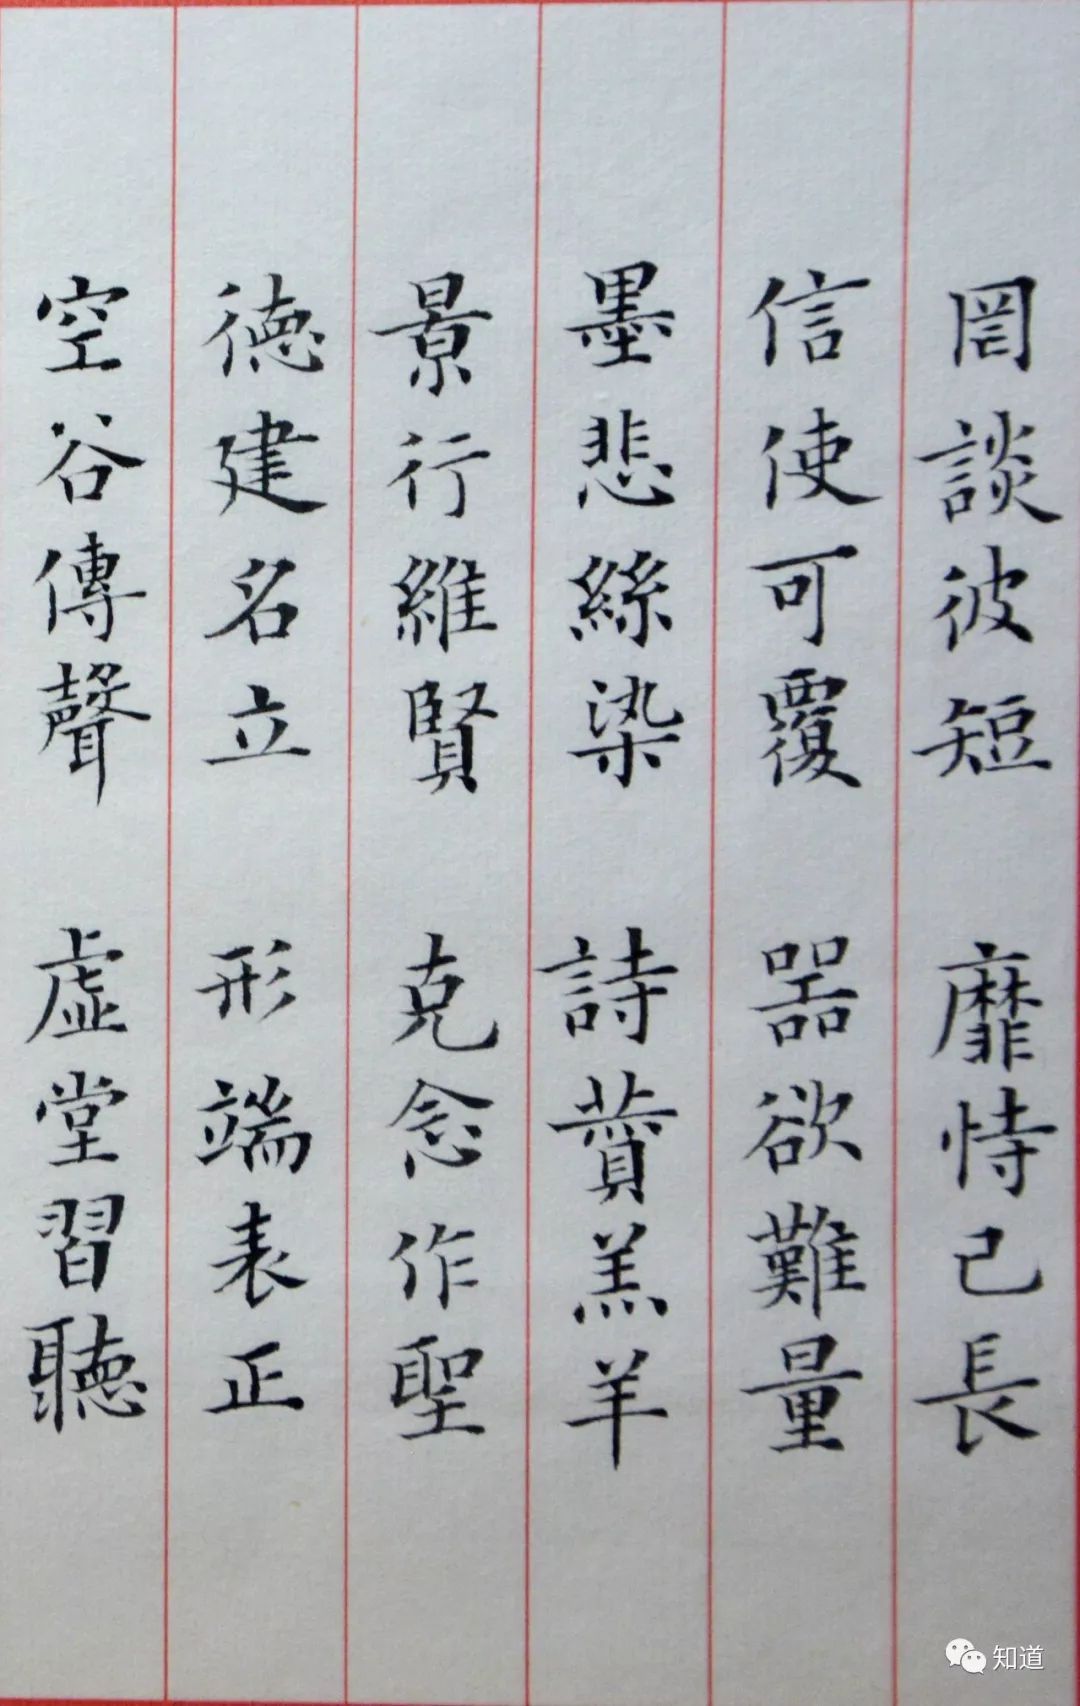 罔談彼短 靡恃己長
信使可覆 器欲難量
墨悲絲染 詩讚羔羊
景行維賢 克念作聖
德建名立 形端表正
空谷傳聲 虛堂習聽
知道